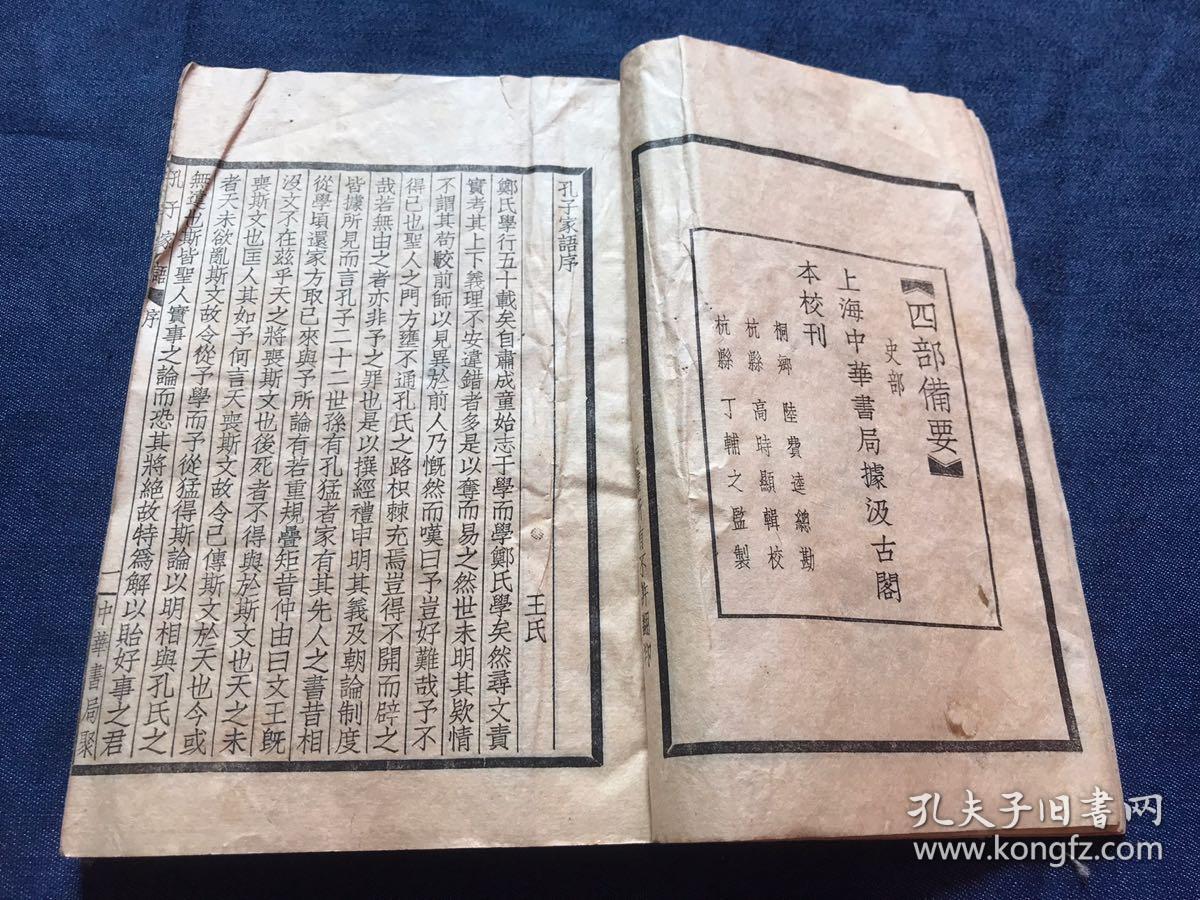 四部備要
史部
上海中華書局據汲古閣
本校刊
桐鄉 陸費逵總勘
杭縣 高時顯輯校
杭縣 丁輔之監製
不許翻印
孔子家語序
王氏
鄭氏學行五十載矣自肅成童始志于學而學鄭氏學矣然尋文責
實考其上下義理不安違錯者多是以奪而易之然世未明其欵情
不謂其苟駮前師以見異於前人乃慨然而嘆曰予豈好難哉予不
得已也聖人之門方壅不通孔氏之路枳棘充焉豈得不開而辟之
哉若無由之者亦非予之罪也是以撰經禮申明其義及朝論制度
皆據所見而言孔子二十二世孫有孔猛者家有其先人之書昔相
從學頃還家方取已來與予所論有若重規疊矩昔仲由曰文王旣
沒文不在茲乎天之將喪斯文也後死者不得與於斯文也天之未
喪斯文也匡人其如予何言天喪斯文故令已傳斯文於天也今或
者天未欲亂斯文故令從予學而予從猛得斯論以明相與孔氏之
無違也斯皆聖人實事之論而恐其將絕故特爲解以貽好事之君
孔子家語 序
一
中華書局聚
孔夫子旧书网
www.kongfz.com